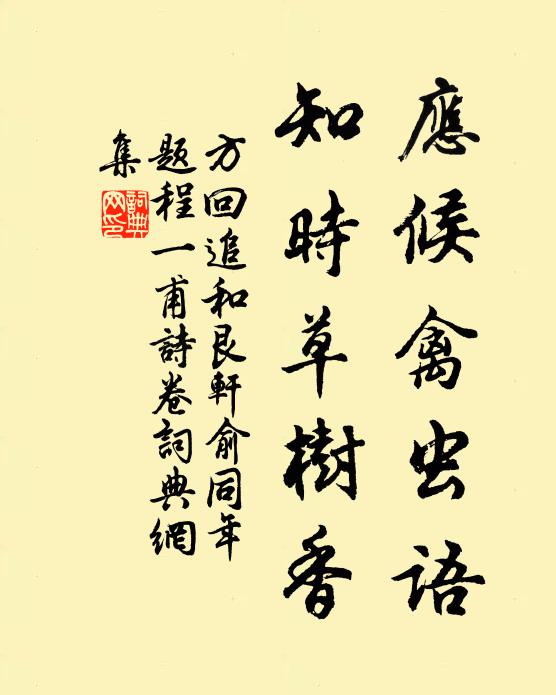 應候禽虫語
知時草樹香
方回追和艮軒俞同年
题程一甫詩卷詞典網
集
詞典
网印